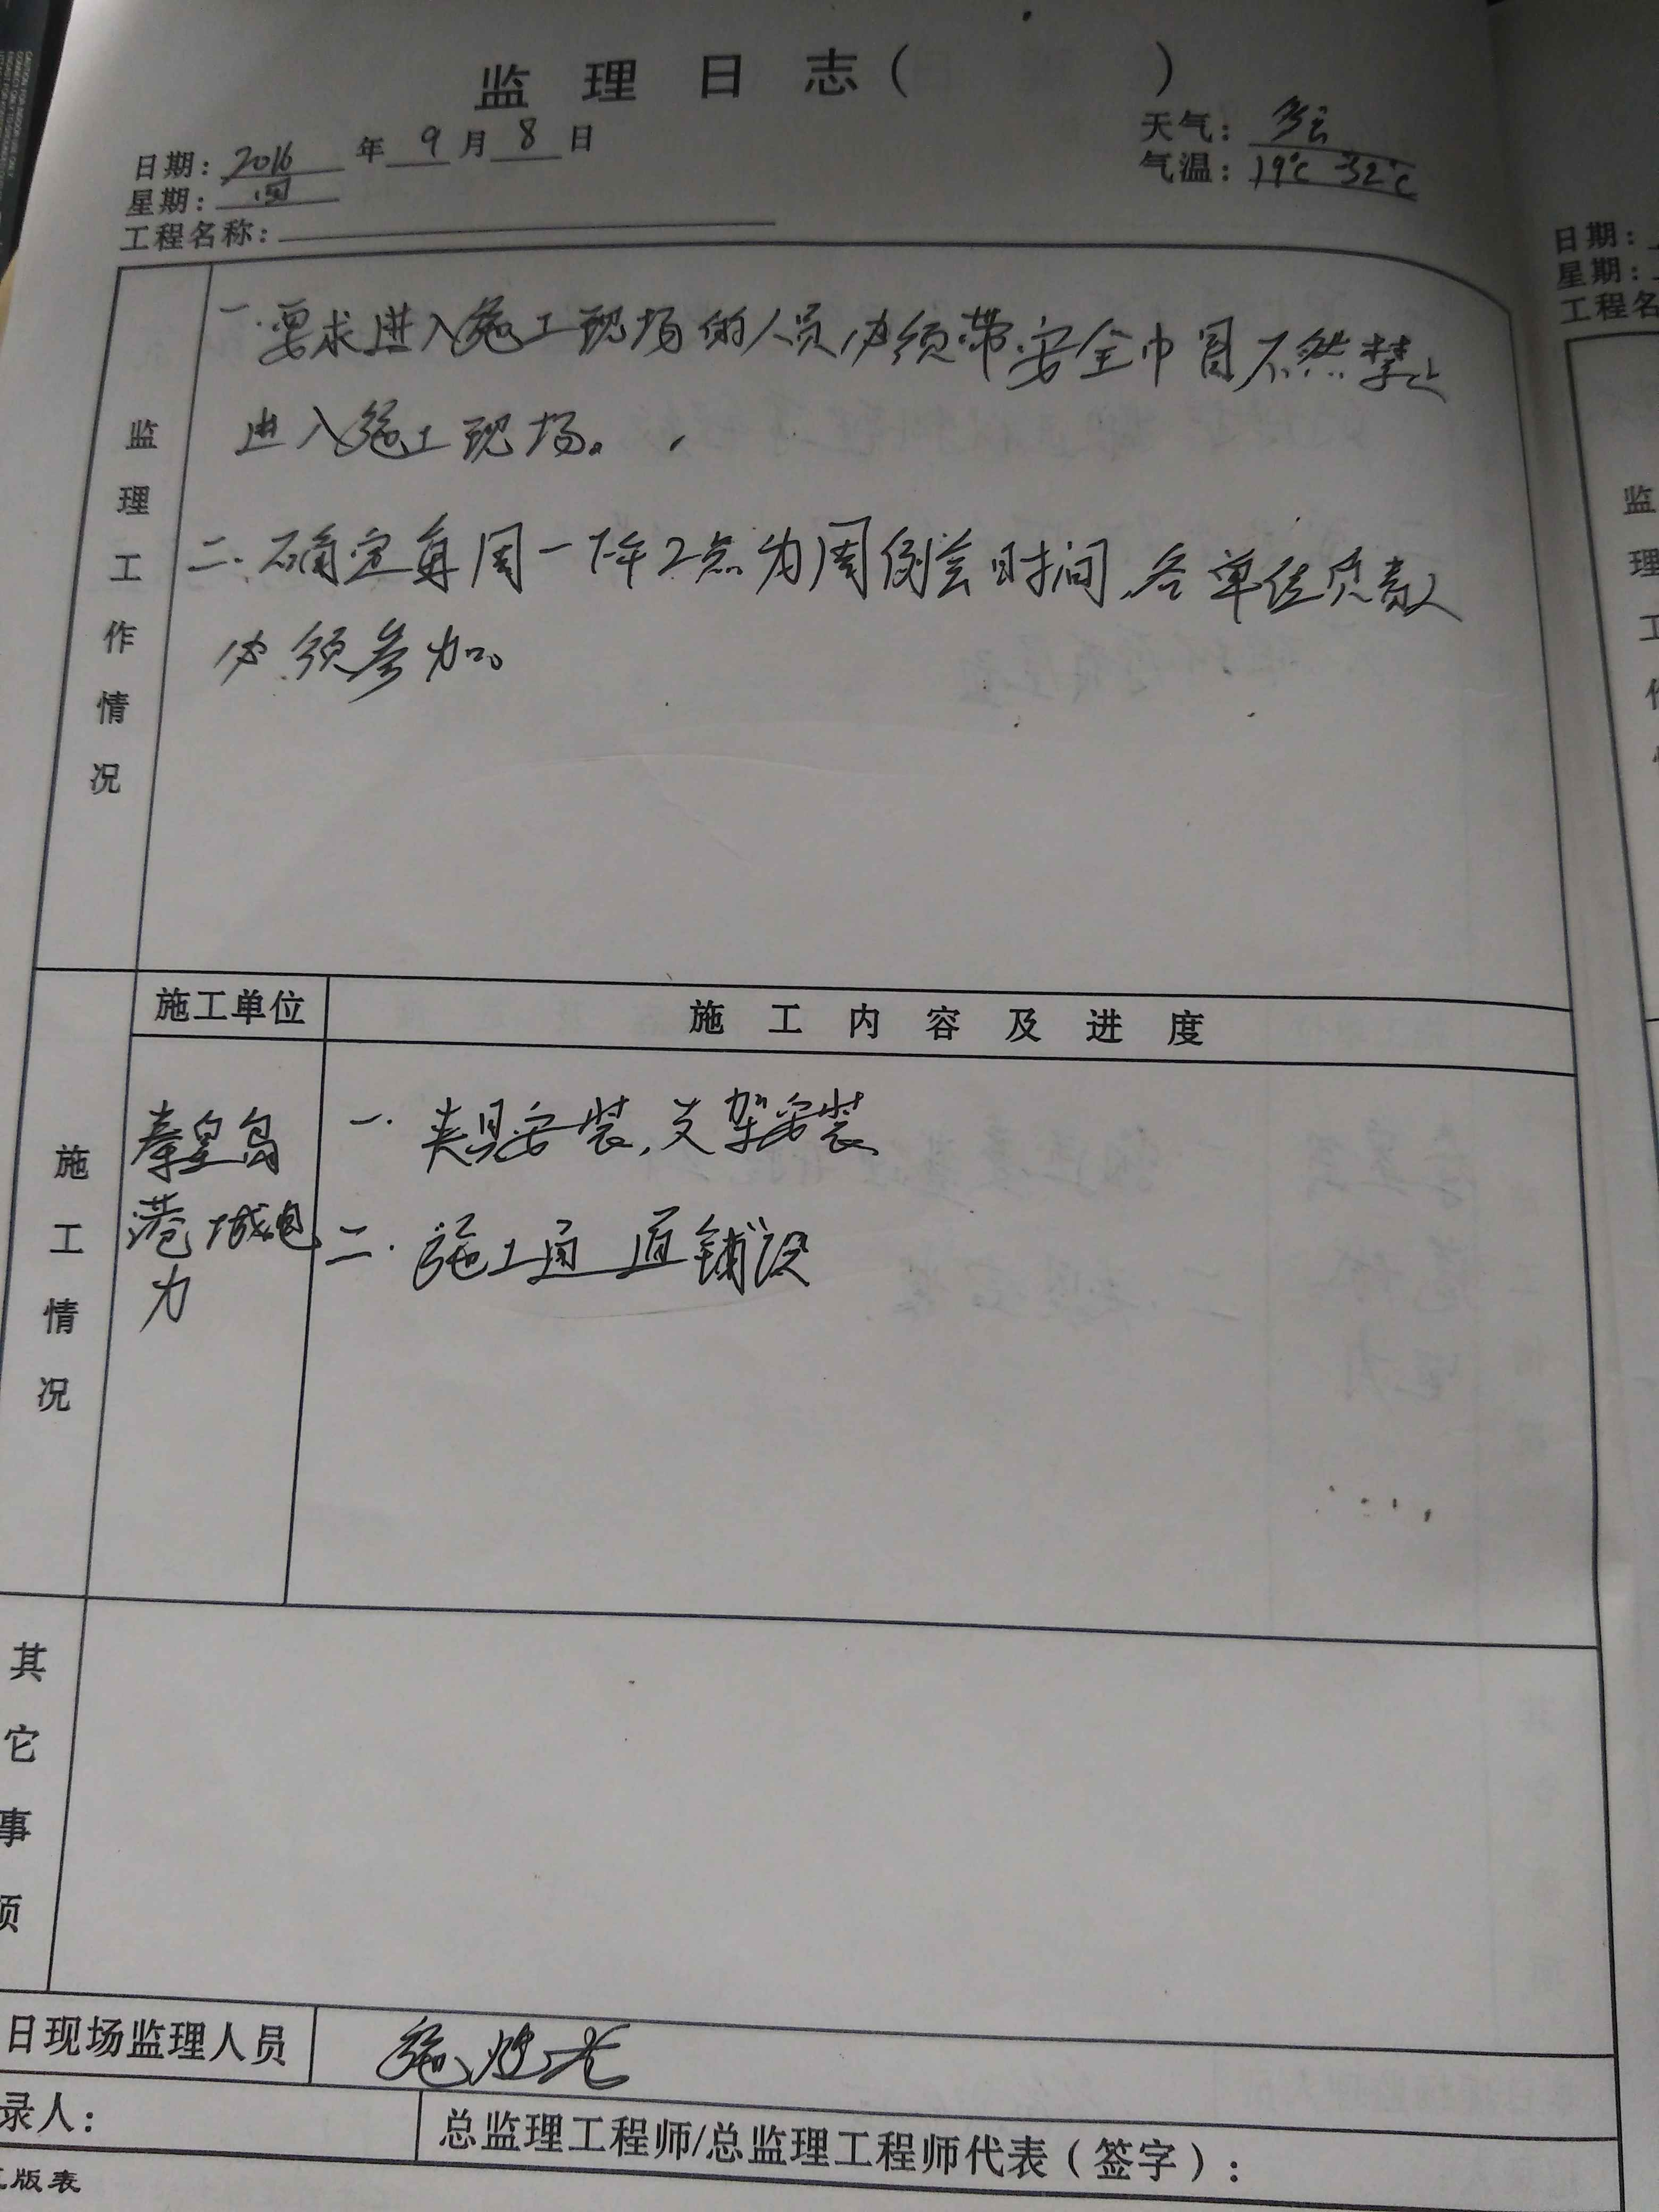 监理日志( )
日期:2016年9月8日
天气:多云
星期:四
气温:19℃ 32℃
工程名称:
监理工作情况
一.要求进入施工现场的人员必须带安全巾冒不然禁止
进入施工现场。
二.确定每周一下午2点为周例会时间,各单位负责人
必须参加。
施工单位
施工内容及进度
施工情况
秦皇岛
港城电
力
一.夹具安装,支架安装
二.施工通道铺设
其它事项
日现场监理人员
录人:
总监理工程师/总监理工程师代表(签字):
版表
日期:
星期:
工程名
监
理
工